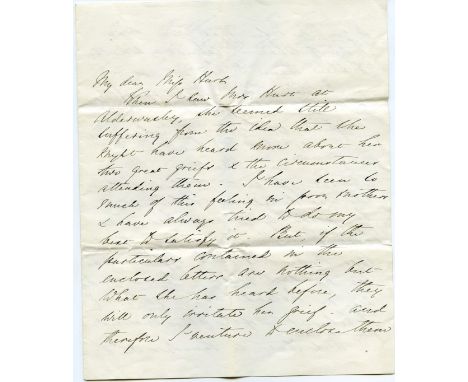 My dear Miss Hurt
When I saw Mrs Hurt at
Alderwasley, she seemed still
suffering from the idea that she
might have heard more about her
two great griefs & the circumstances
attending them. I have seen so
much of this feeling in poor Mother
& have always tried to do my
best to satisfy it. But, if the
particulars contained in the
enclosed letters are nothing but
what she has heard before, they
will only irritate her grief. and
therefore I venture to enclose them